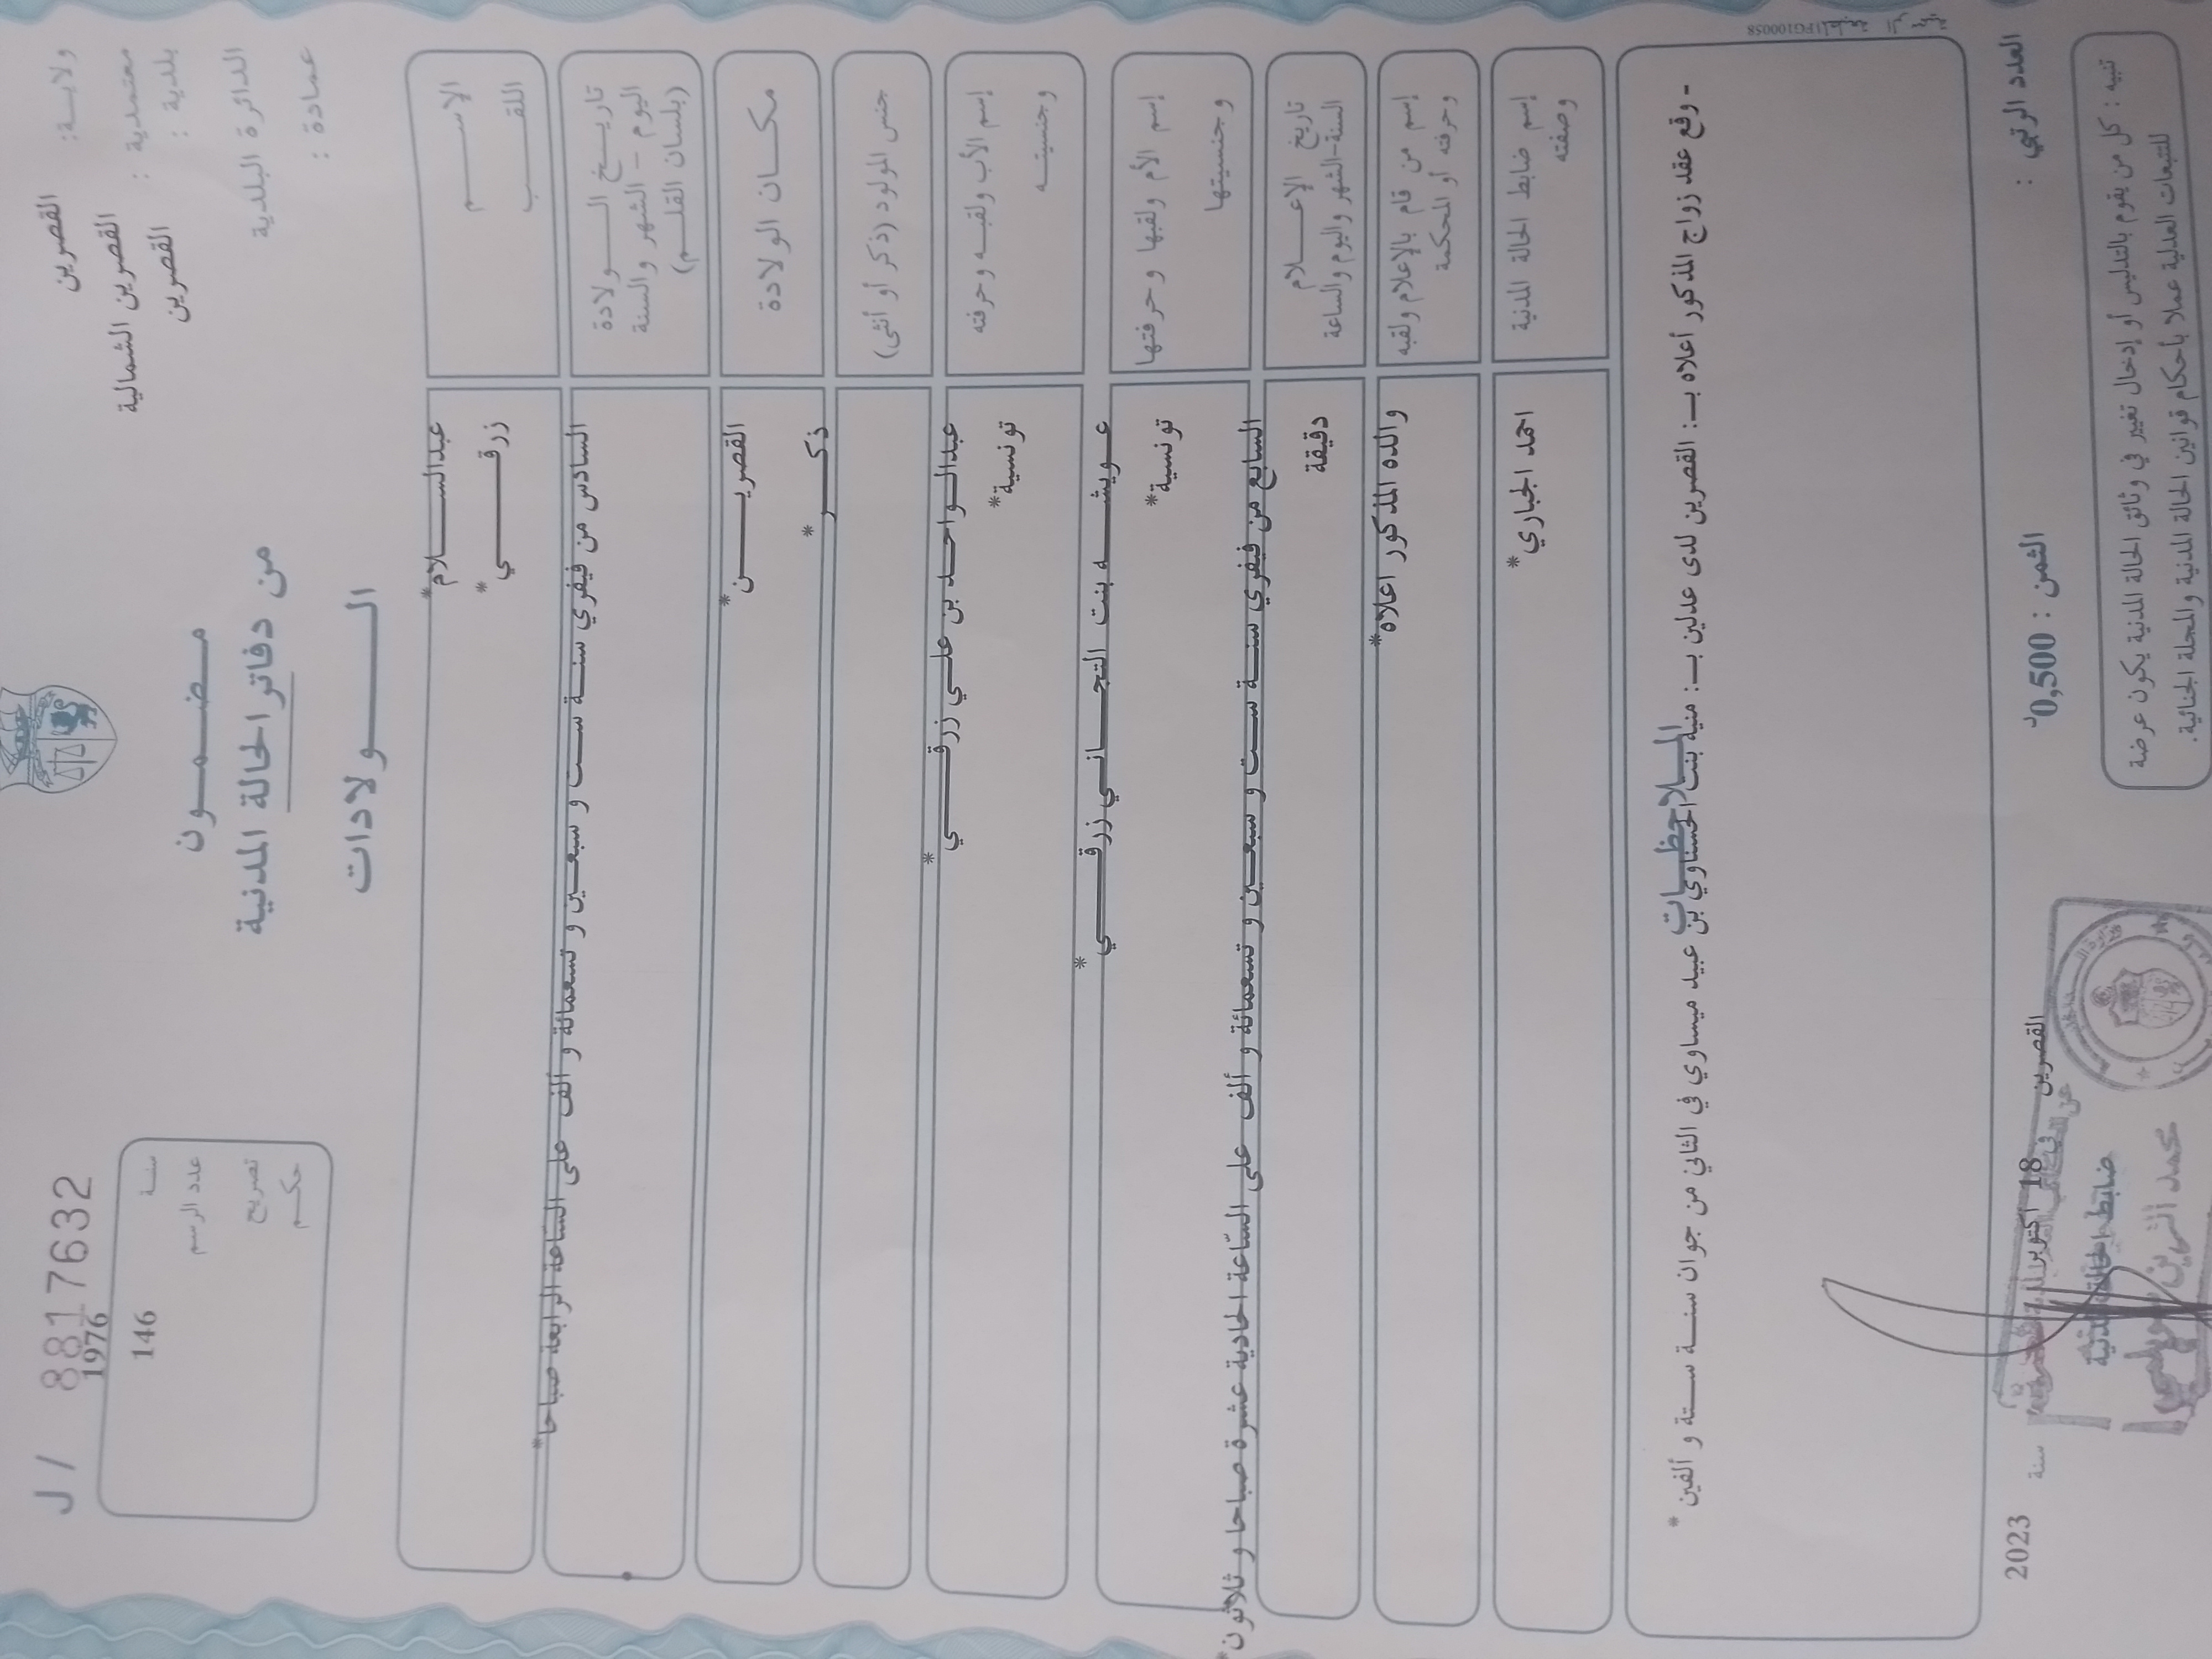 J / 8817632
ولايـة: القصرين
معتمدية : القصرين الشمالية
بلدية : القصرين
الدائرة البلدية
عمادة :
مضمـــون
من دفاتر الحالة المدنية
الـــولادات
سنة 1976
عدد الرسم 146
تصريح
حكم
الاســـم عبدالســـلام*
اللقـــب زرقـــي*
تاريـــخ الـــولادة
اليوم – الشهر والسنة
(بلسان القلـــم)
السادس من فيفري سنـة ست و سبعين و تسعمائة و ألف على السّاعة الرابعة صباحا*
مكـــان الولادة القصريـــن*
جنس المولود (ذكر أو أنثى) ذكـــر*
إسم الأب ولقبـه وحرفته عبدالـواحد بن علـي زرقـــي*
وجنسيتـــه تونسية*
إسم الأم ولقبها وحرفتها عـويشـه بنت التجـانـي زرقـــي*
وجنسيتها تونسية*
تاريخ الإعـــلام
السنة-الشهر واليوم والساعة
السابع من فيفري سنـة ست و سبعين و تسعمائة و ألف على السّاعة الحادية عشرة صباحا و ثلاثون*
دقيقة
إسم من قام بالإعلام ولقبه
وحرفته أو المحكمة
والده المذكور اعلاه*
إسم ضابط الحالة المدنية
وصفته
احمد الجباري*
الملاحظـــات
- وقع عقد زواج المذكور أعلاه بـ: القصرين لدى عدلين بـ: منية بنت الحسناوي بن عبيد ميساوي في الثاني من جوان سنـة ستة و ألفين*
FG1000058
العدد الرتبي :
الثمن : 0,500د
القصرين في 18 أكتوبر سنة 2023
ضابط الحالة المدنية
تنبيه : كل من يقوم بالتدليس أو إدخال تغيير في وثائق الحالة المدنية يكون عرضة
للتتبعات العدلية عملا بأحكام قوانين الحالة المدنية والمجلة الجنائية.